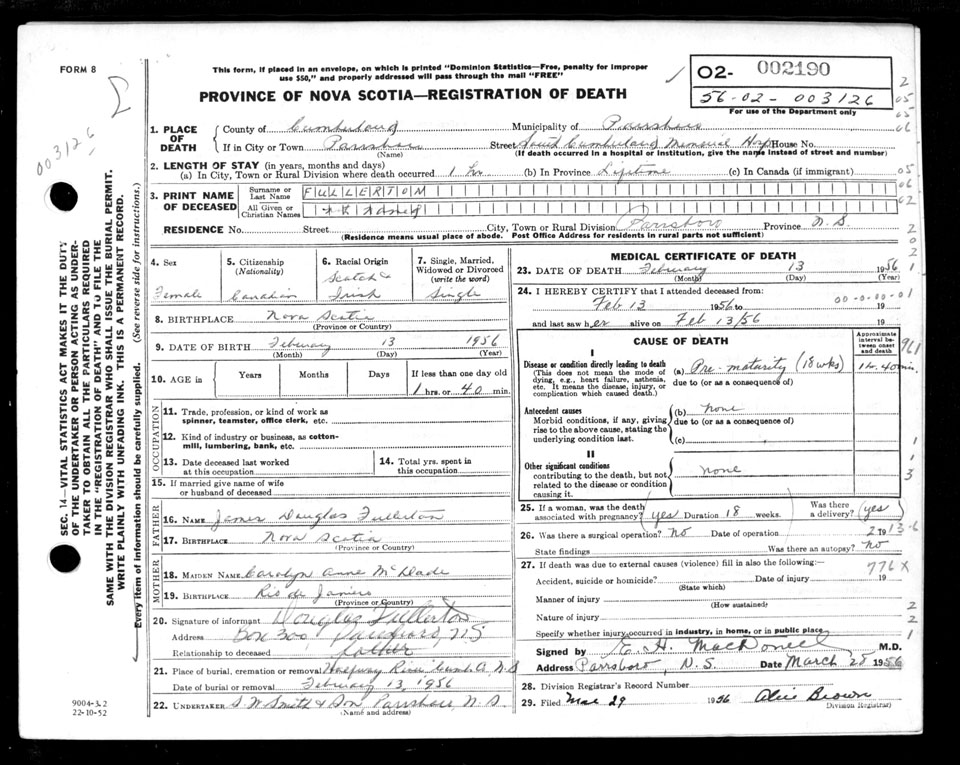 FORM 8
This form, if placed in an envelope, on which is printed "Dominion Statistics—Free, penalty for improper
use $50," and properly addressed will pass through the mail "FREE"
PROVINCE OF NOVA SCOTIA—REGISTRATION OF DEATH
02- 002190
56-02-003126
For use of the Department only
003126
1. PLACE OF DEATH
County of Cumberland Municipality of Parrsboro
If in City or Town Parrsboro Street South Cumberland Memorial Hosp House No.
(Name) (If death occurred in a hospital or institution, give the name instead of street and number)
2. LENGTH OF STAY (in years, months and days)
(a) In City, Town or Rural Division where death occurred 1 hr (b) In Province Lifetime (c) In Canada (if immigrant)
3. PRINT NAME OF DECEASED
Surname or Last Name FULLERTON
All Given or Christian Names
RESIDENCE No. Street City, Town or Rural Division Parrsboro Province N.S.
(Residence means usual place of abode. Post Office Address for residents in rural parts not sufficient)
4. Sex Female
5. Citizenship (Nationality) Canadian
6. Racial Origin Scotch & Irish
7. Single, Married, Widowed or Divorced (write the word) Single
8. BIRTHPLACE Nova Scotia
(Province or Country)
9. DATE OF BIRTH February 13 1956
(Month) (Day) (Year)
10. AGE in Years Months Days If less than one day old
1 hrs. or 40 min.
OCCUPATION
11. Trade, profession, or kind of work as
spinner, teamster, office clerk, etc.
12. Kind of industry or business, as cotton-
mill, lumbering, bank, etc.
13. Date deceased last worked
at this occupation
14. Total yrs. spent in
this occupation
15. If married give name of wife
or husband of deceased
FATHER
16. NAME James Douglas Fullerton
17. BIRTHPLACE Nova Scotia
(Province or Country)
MOTHER
18. MAIDEN NAME Carolyn Anne McDade
19. BIRTHPLACE Rio de Janiero
(Province or Country)
20. Signature of informant Douglas Fullerton
Address Box 300 Parrsboro, N.S.
Relationship to deceased Father
21. Place of burial, cremation or removal Halfway River Cumb. Co, N.S
Date of burial or removal February 13, 1956
22. UNDERTAKER S.W. Smith & Son Parrsboro, N.S.
(Name and address)
MEDICAL CERTIFICATE OF DEATH
23. DATE OF DEATH February 13 1956
(Month) (Day)
24. I HEREBY CERTIFY that I attended deceased from:
Feb 13 1956 to 19
00-0-00-01
and last saw her alive on Feb 13/56 19
CAUSE OF DEATH
Approximate interval between onset and death
I
Disease or condition directly leading to death
(This does not mean the mode of
dying, e.g., heart failure, asthenia,
etc. It means the disease, injury, or
complication which caused death.)
(a) Pre-maturity (18 wks) 1 hr. 40 min.
due to (or as a consequence of)
Antecedent causes
Morbid conditions, if any, giving
rise to the above cause, stating the
underlying condition last.
(b) none
due to (or as a consequence of)
(c)
II
Other significant conditions
contributing to the death, but not
related to the disease or condition
causing it.
none
25. If a woman, was the death
associated with pregnancy? yes Duration 18 weeks. Was there a delivery? (yes)
26. Was there a surgical operation? No Date of operation 19
State findings Was there an autopsy? No
27. If death was due to external causes (violence) fill in also the following:—
776 X
Accident, suicide or homicide? Date of injury 19
(State which)
Manner of injury
(How sustained)
Nature of injury
Specify whether injury occurred in industry, in home, or in public place
Signed by E. H. MacDonell M.D.
Address Parrsboro, N.S. Date March 28 1956
28. Division Registrar's Record Number
29. Filed Mar 29 1956 Alice Brown
Division Registrar
9004-3.2
22-10-52
SEC. 14—VITAL STATISTICS ACT MAKES IT THE DUTY
OF THE UNDERTAKER OR PERSON ACTING AS UNDER-
TAKER TO OBTAIN ALL THE PARTICULARS REQUIRED
IN THE "REGISTRATION OF DEATH" AND TO FILE THE
SAME WITH THE DIVISION REGISTRAR WHO SHALL ISSUE THE BURIAL PERMIT.
WRITE PLAINLY WITH UNFADING INK. THIS IS A PERMANENT RECORD.
Every item of information should be carefully supplied. (See reverse side for instructions.)